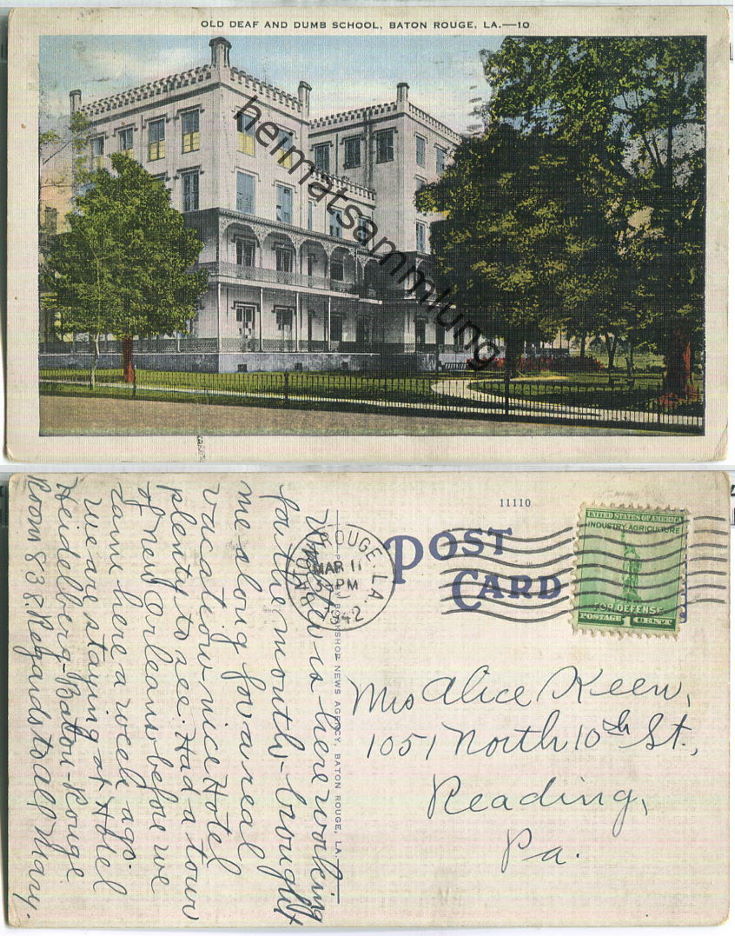 OLD DEAF AND DUMB SCHOOL, BATON ROUGE, LA.—10
heimatsammlung
11110
POST
CARD
BATON ROUGE, LA.
MAR 11
PM
1942
UNITED STATES OF AMERICA
INDUSTRY-AGRICULTURE
FOR DEFENSE
POSTAGE 1 CENT
BOOKSHOP NEWS AGENCY, BATON ROUGE, LA.
is here working
for the month - brought
me along for a real
vacation, nice Hotel
plenty to see. Had a tour
of New Orleans before we
came here a week ago.
we are staying at Hotel
Heidelberg-Baton-Rouge
Room 838. Regards to all Mary.
Mrs Alice Keen,
1051 North 10th St.,
Reading,
Pa.